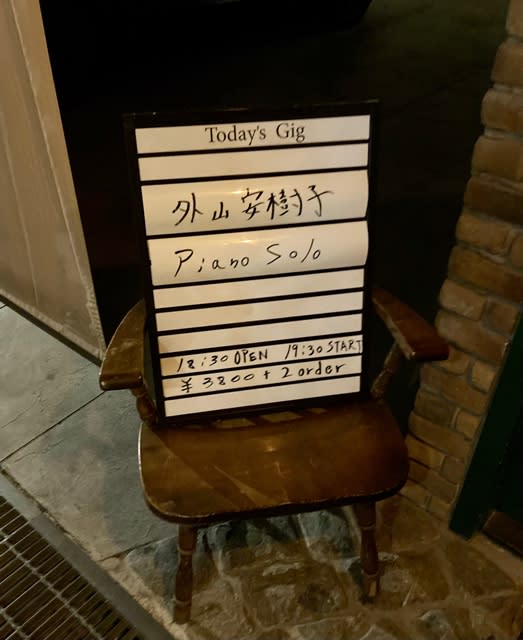 Today's Gig
外山安樹子
Piano Solo
18:30 OPEN 19:30 START
¥3800+2order